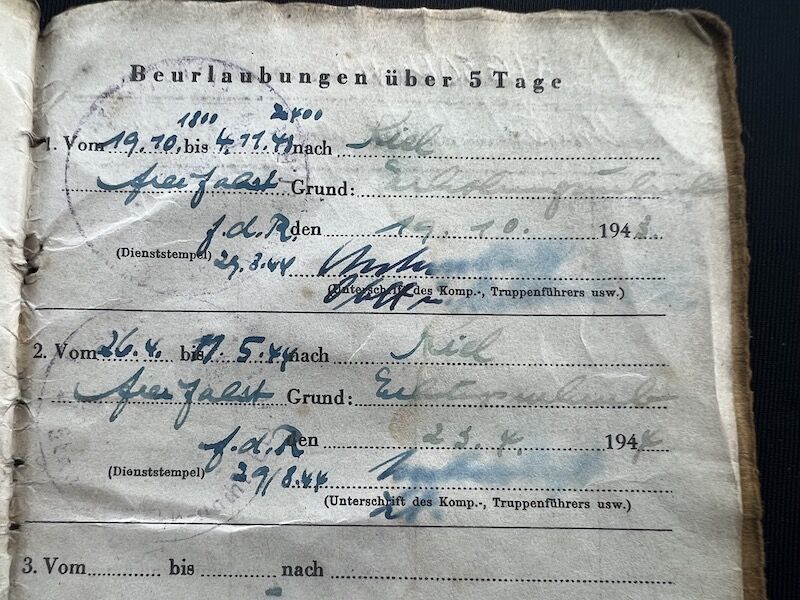 Beurlaubungen über 5 Tage
1800 2400
1. Vom 19.10. bis 4.11.43 nach Kiel
freie Fahrt Grund: Erholungsurlaub
f.d.R. den 19. 10. 1943.
(Dienststempel) 29.8.44
(Unterschrift des Komp.-, Truppenführers usw.)
2. Vom 26.4. bis 11.5.44 nach Kiel
freie Fahrt Grund: Erholungsurlaub
f.d.R. den 23. 4. 1944
(Dienststempel) 29/8.44
(Unterschrift des Komp.-, Truppenführers usw.)
3. Vom bis nach